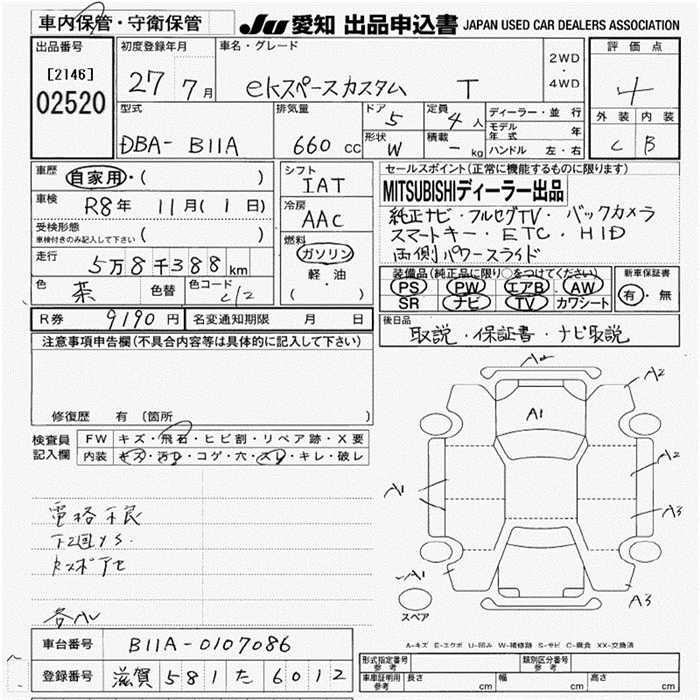 車内保管・守衛保管
JU 愛知 出品申込書 JAPAN USED CAR DEALERS ASSOCIATION
出品番号
[2146]
02520
初度登録年月
27年 7月
車名・グレード
ekスペースカスタム T
2WD
・
4WD
評価点
4
外装 内装
C B
型式
DBA- B11A
排気量
660 cc
ドア 5
形状 W
定員 4人
積載 - kg
ディーラー・並行
モデル年式 年
ハンドル 左・右
車歴 自家用・( )
車検 R8年 11月(1日)
受検形態
車検付きのみ記入して下さい ( )
走行 5万8千388km
色 茶 色替 色コード C12
シフト
IAT
冷房
AAC
燃料
ガソリン
軽・油
( )
セールスポイント(正常に機能するものに限ります)
MITSUBISHIディーラー出品
純正ナビ・フルセグTV・バックカメラ
スマートキー・ETC・HID
両側パワースライド
装備品(純正品に限り○をつけてください)
PS PW エアB AW
SR ナビ TV カワシート
新車保証書
有・無
R券 9190円 名変通知期限 月 日
後日品
取説・保証書・ナビ取説
注意事項申告欄(不具合内容等は具体的に記入して下さい)
修復歴 有 〔箇所 〕
検査員
記入欄
FW キズ・飛石・ヒビ割・リペア跡・X要
内装 キズ・汚レ・コゲ・穴・スレ・キレ・破レ
電格不良
下回りS.
A2
A1
A2
A2
A1
A3
A1
A3
スペア
A-キズ E-エクボ U-凹み W-補修跡 S-サビ C-腐食 XX-交換済
車台番号 B11A-0107086
登録番号 滋賀 581 た 6012
型式指定番号
参考
類別区分番号
参考
車庫証明用
参考
長さ cm 幅 cm 高さ cm